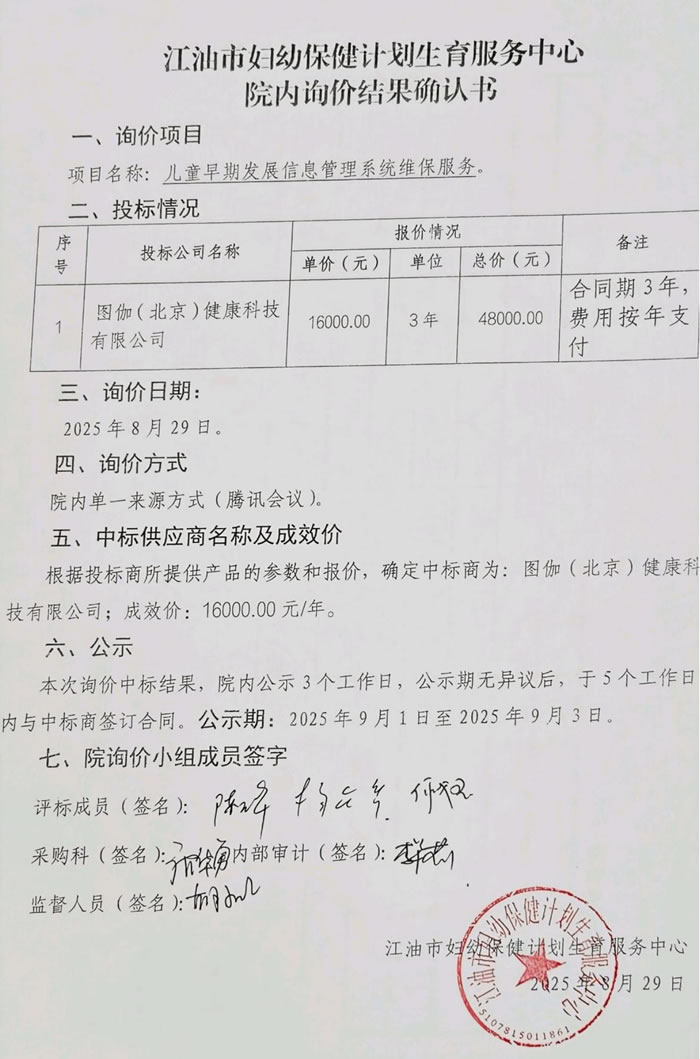 江油市妇幼保健计划生育服务中心
院内询价结果确认书
一、询价项目
项目名称：儿童早期发展信息管理系统维保服务。
二、投标情况
序号 投标公司名称 报价情况 备注
单价（元） 单位 总价（元）
1 图伽（北京）健康科技有限公司 16000.00 3年 48000.00 合同期3年，费用按年支付
三、询价日期：
2025年8月29日。
四、询价方式
院内单一来源方式（腾讯会议）。
五、中标供应商名称及成效价
根据投标商所提供产品的参数和报价，确定中标商为：图伽（北京）健康科
技有限公司；成效价：16000.00元/年。
六、公示
本次询价中标结果，院内公示3个工作日，公示期无异议后，于5个工作日
内与中标商签订合同。公示期：2025年9月1日至2025年9月3日。
七、院询价小组成员签字
评标成员（签名）：
采购科（签名）： 内部审计（签名）：
监督人员（签名）：
江油市妇幼保健计划生育服务中心
2025年8月29日
江油市妇幼保健计划生育服务中心
5107815011861